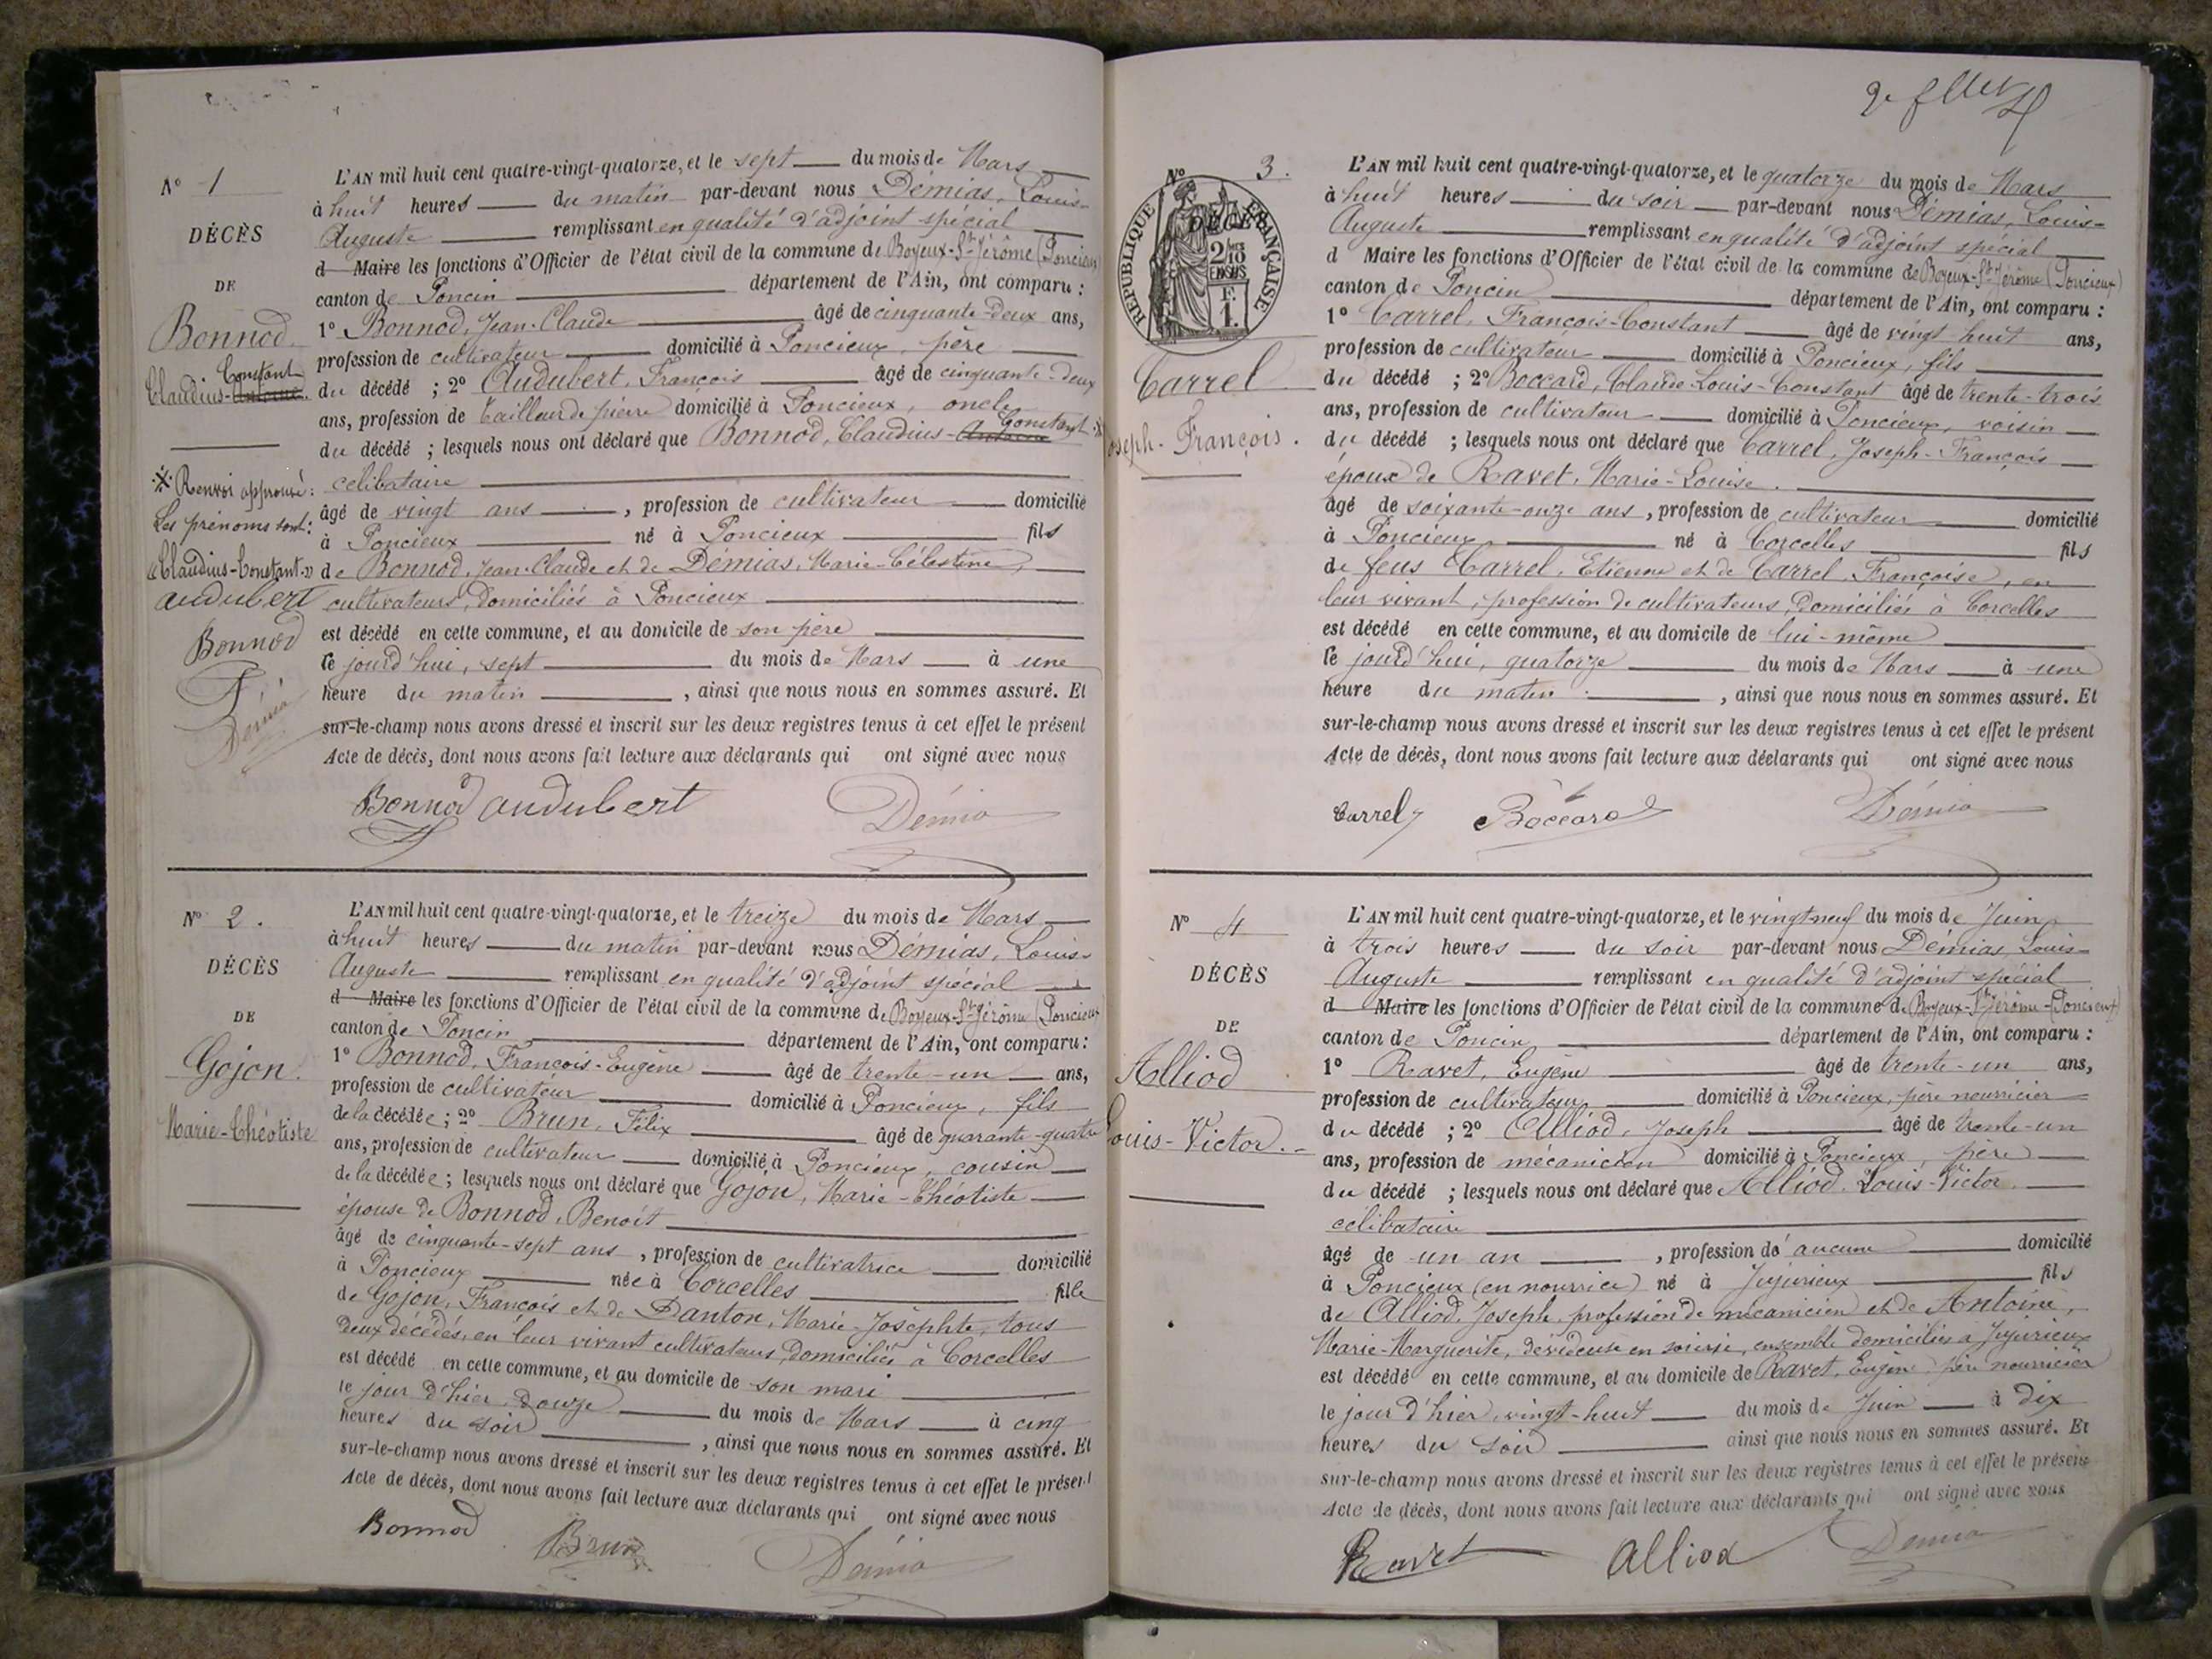 N° 1
DÉCÈS
DE
Bonnod
Constant
Claudius-Antoine.
※ Renvoi approuvé:
Les prénoms sont:
« Claudius-Constant »
audubert
Bonnod
Démia
L'AN mil huit cent quatre-vingt-quatorze, et le sept du mois de Mars
à huit heures du matin par-devant nous Démias, Louis-
Auguste remplissant en qualité d'adjoint spécial
d Maire les fonctions d'Officier de l'état civil de la commune de Boyeux-St-Jérôme (Poncieux)
canton de Poncin département de l'Ain, ont comparu :
1° Bonnod, Jean-Claude âgé de cinquante-deux ans,
profession de cultivateur domicilié à Poncieux, père
du décédé ; 2° Audubert, François âgé de cinquante-deux
ans, profession de tailleur de pierre domicilié à Poncieux, oncle
Constant ※
du décédé ; lesquels nous ont déclaré que Bonnod, Claudius-Antoine
célibataire
âgé de vingt ans , profession de cultivateur domicilié
à Poncieux né à Poncieux fils
de Bonnod, Jean-Claude et de Démias, Marie-Célestine,
cultivateurs, domiciliés à Poncieux
est décédé en cette commune, et au domicile de son père
le jourd'hui, sept du mois de Mars à une
heure du matin , ainsi que nous nous en sommes assuré. Et
sur-le-champ nous avons dressé et inscrit sur les deux registres tenus à cet effet le présent
Acte de décès, dont nous avons fait lecture aux déclarants qui ont signé avec nous
Bonnod audubert Démia
N° 2.
DÉCÈS
DE
Gojon.
Marie-Théotiste
L'AN mil huit cent quatre-vingt-quatorze, et le treize du mois de Mars
à huit heures du matin par-devant nous Démias, Louis-
Auguste remplissant en qualité d'adjoint spécial
d Maire les fonctions d'Officier de l'état civil de la commune de Boyeux-St-Jérôme (Poncieux
canton de Poncin département de l'Ain, ont comparu :
1° Bonnod, François-Eugène âgé de trente-un ans,
profession de cultivateur domicilié à Poncieux, fils
de la décédée ; 2° Brun, Félix âgé de quarante-quatre
ans, profession de cultivateur domicilié à Poncieux, cousin
de la décédée ; lesquels nous ont déclaré que Gojon, Marie-Théotiste
épouse de Bonnod, Benoît
âgé de cinquante-sept ans , profession de cultivatrice domicilié
à Poncieux née à Corcelles fille
de Gojon, François et de Danton, Marie-Josephte, tous
deux décédés, en leur vivant cultivateurs, domiciliés à Corcelles
est décédé en cette commune, et au domicile de son mari
le jour d'hier, douze du mois de Mars à cinq
heures du soir , ainsi que nous nous en sommes assuré. Et
sur-le-champ nous avons dressé et inscrit sur les deux registres tenus à cet effet le présent
Acte de décès, dont nous avons fait lecture aux déclarants qui ont signé avec nous
Bonnod Brun Démia
N° 3.
DÉCÈS
RÉPUBLIQUE FRANÇAISE
2/10 EN SUS
F.
1.
Carrel
Joseph-François.
L'AN mil huit cent quatre-vingt-quatorze, et le quatorze du mois de Mars
à huit heures du soir par-devant nous Démias, Louis-
Auguste remplissant en qualité d'adjoint spécial
d Maire les fonctions d'Officier de l'état civil de la commune de Boyeux-St-Jérôme (Poncieux)
canton de Poncin département de l'Ain, ont comparu :
1° Carrel, François-Constant âgé de vingt huit ans,
profession de cultivateur domicilié à Poncieux, fils
du décédé ; 2° Boccard, Claude-Louis-Constant âgé de trente-trois
ans, profession de cultivateur domicilié à Poncieux, voisin
du décédé ; lesquels nous ont déclaré que Carrel, Joseph-François
époux de Ravet, Marie-Louise.
âgé de soixante-onze ans, profession de cultivateur domicilié
à Poncieux né à Corcelles fils
de feus Carrel, Etienne et de Carrel, Françoise, en
leur vivant, profession de cultivateurs, domiciliés à Corcelles
est décédé en cette commune, et au domicile de lui-même
le jourd'hui, quatorze du mois de Mars à une
heure du matin , ainsi que nous nous en sommes assuré. Et
sur-le-champ nous avons dressé et inscrit sur les deux registres tenus à cet effet le présent
Acte de décès, dont nous avons fait lecture aux déclarants qui ont signé avec nous
Carrel Boccard Démia
N° 4
DÉCÈS
DE
Alliod
Louis-Victor.
L'AN mil huit cent quatre-vingt-quatorze, et le vingt-neuf du mois de Juin
à trois heures du soir par-devant nous Démias, Louis-
Auguste remplissant en qualité d'adjoint spécial
d Maire les fonctions d'Officier de l'état civil de la commune de Boyeux-St-Jérôme-(Poncieux)
canton de Poncin département de l'Ain, ont comparu :
1° Ravet, Eugène âgé de trente-un ans,
profession de cultivateur domicilié à Poncieux, père nourricier
du décédé ; 2° Alliod, Joseph âgé de trente-un
ans, profession de mécanicien domicilié à Poncieux, père
du décédé ; lesquels nous ont déclaré que Alliod, Louis-Victor.
célibataire
âgé de un an , profession de aucune domicilié
à Poncieux (en nourrice) né à Jujurieux fils
de Alliod, Joseph, profession de mécanicien et de Antoine,
Marie-Marguerite, dévideuse en soierie, ensemble domiciliés à Jujurieux
est décédé en cette commune, et au domicile de Ravet, Eugène père nourricier
le jour d'hier, vingt-huit du mois de Juin à dix
heures du soir ainsi que nous nous en sommes assuré. Et
sur-le-champ nous avons dressé et inscrit sur les deux registres tenus à cet effet le présent
Acte de décès, dont nous avons fait lecture aux déclarants qui ont signé avec nous
Ravet Alliod Démia